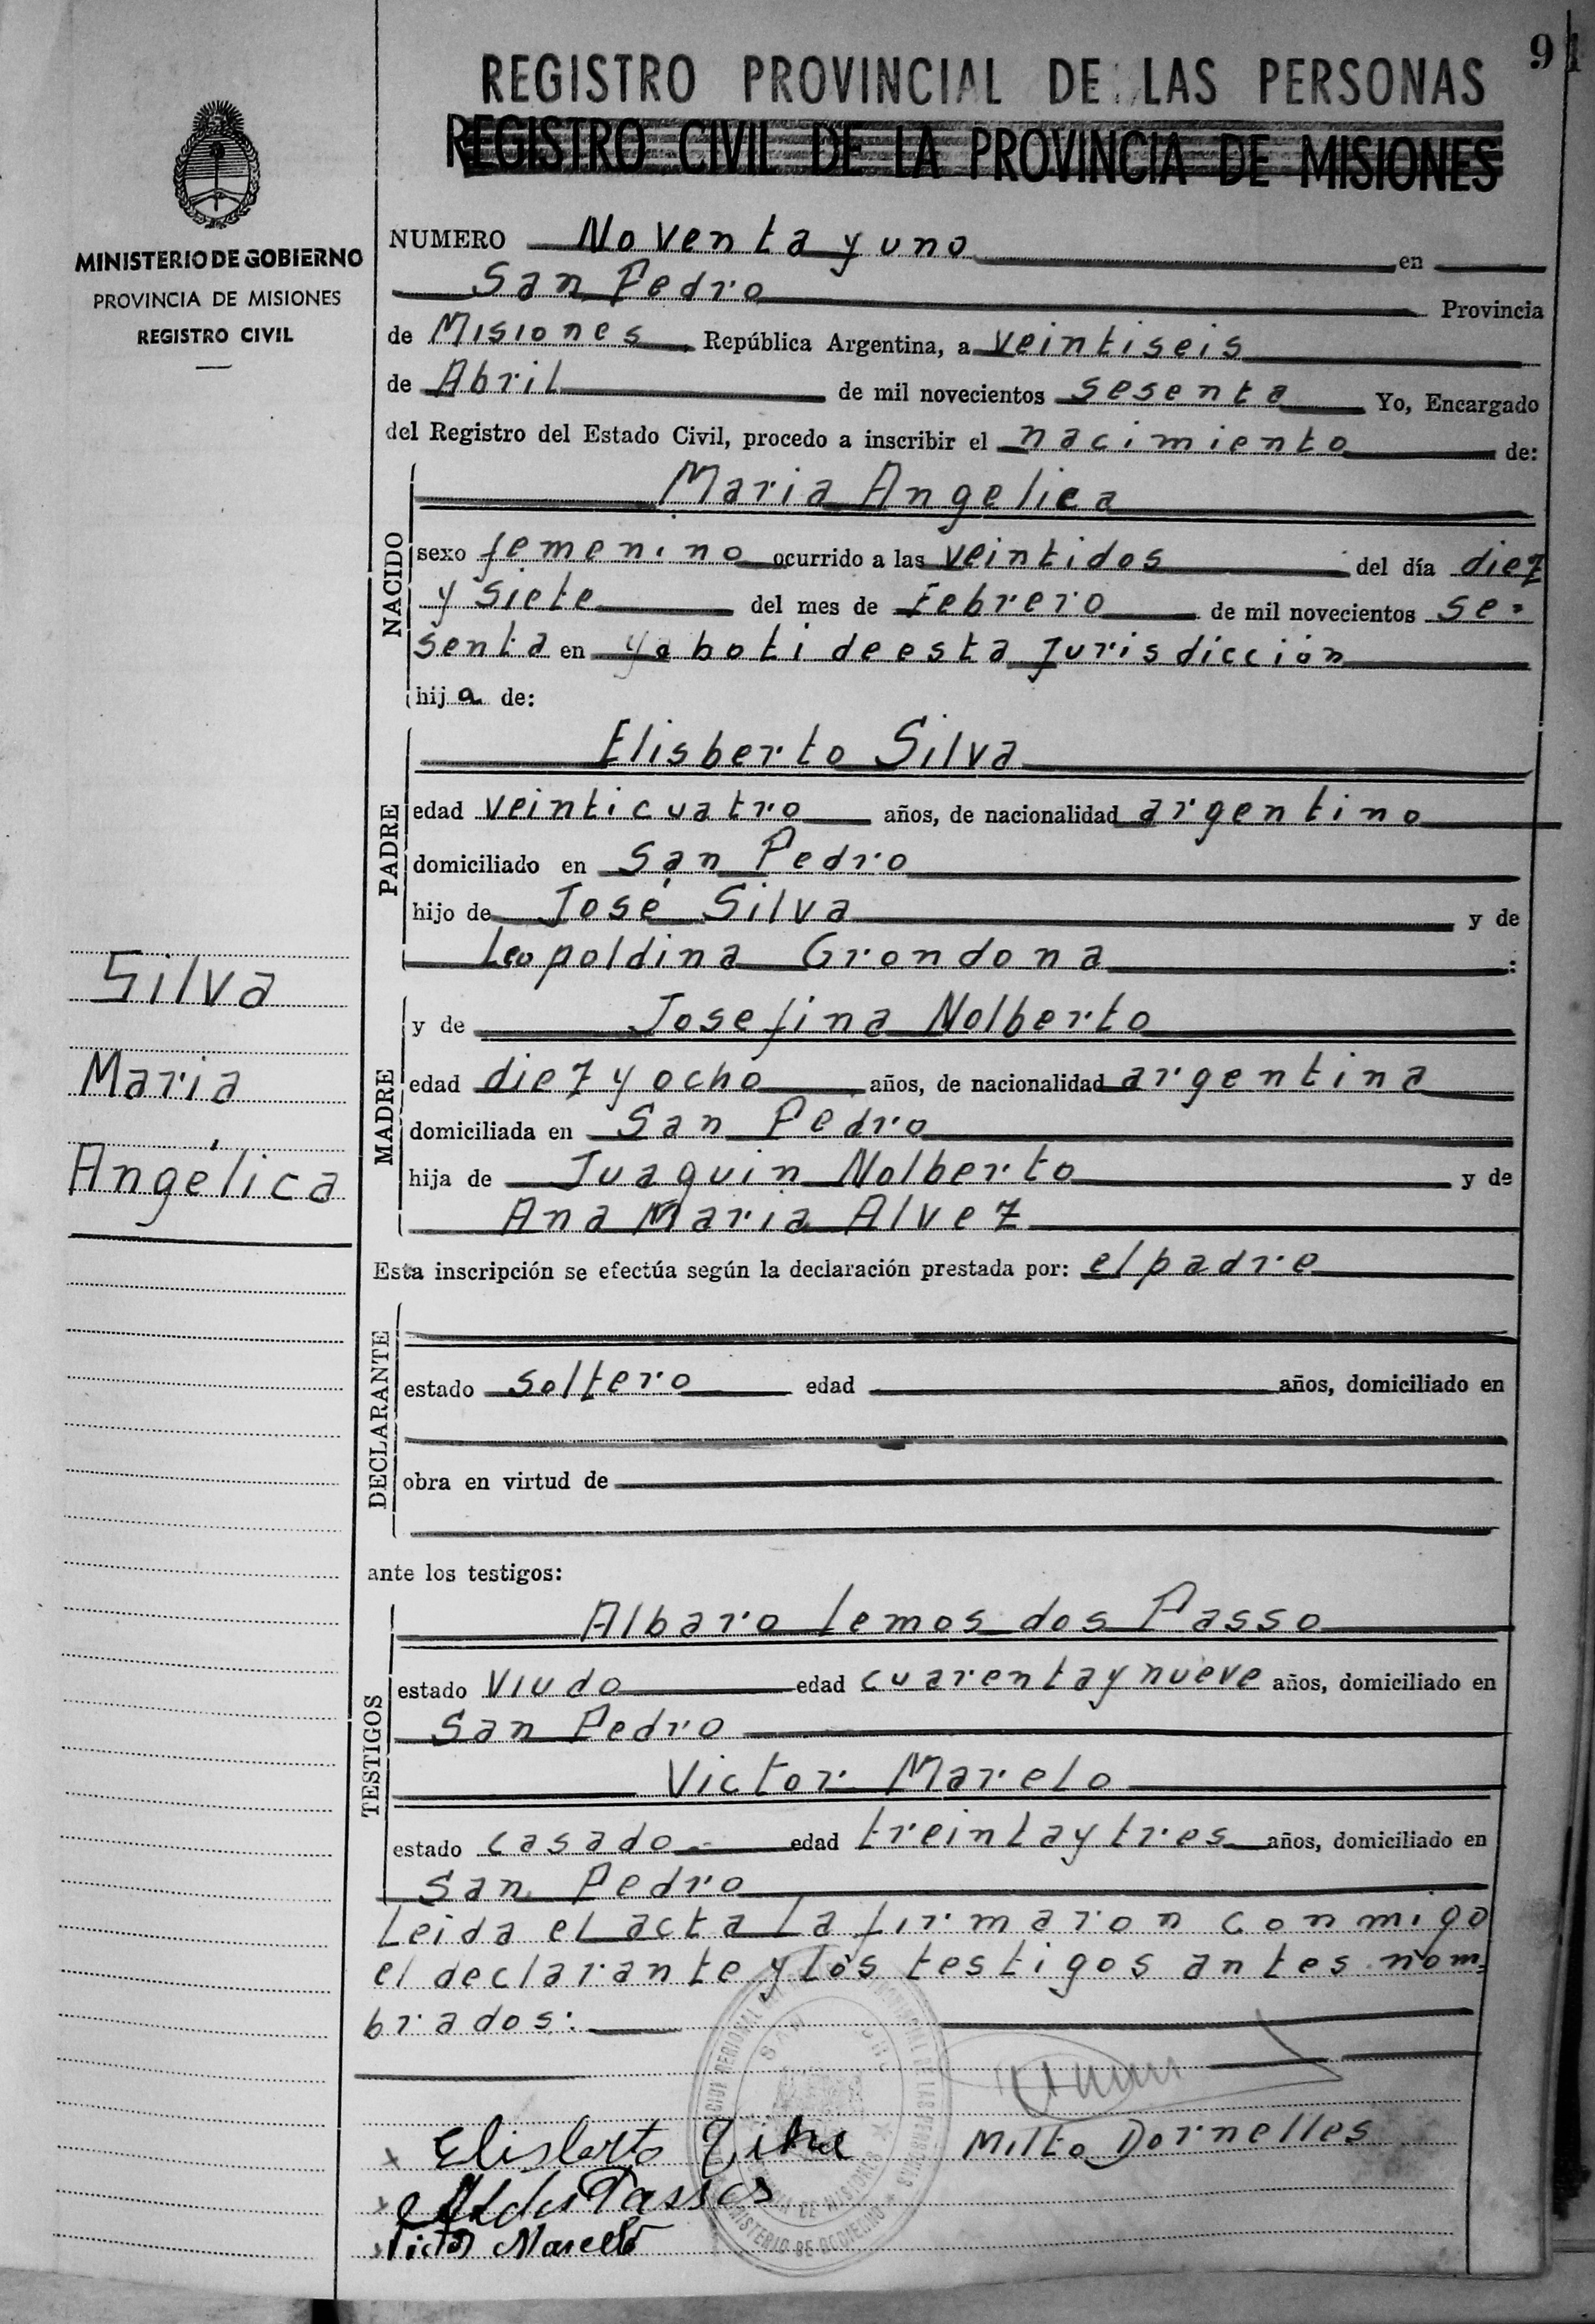 91
REGISTRO PROVINCIAL DE LAS PERSONAS
REGISTRO CIVIL DE LA PROVINCIA DE MISIONES
MINISTERIO DE GOBIERNO
PROVINCIA DE MISIONES
REGISTRO CIVIL
NUMERO Noventa y uno en
San Pedro Provincia
de Misiones, República Argentina, a veintiseis
de Abril de mil novecientos sesenta Yo, Encargado
del Registro del Estado Civil, procedo a inscribir el nacimiento de:
NACIDO
Maria Angelica
sexo femenino ocurrido a las veintidos del día diez
y siete del mes de Febrero de mil novecientos se-
senta en Yaboti de esta Jurisdicción
hija de:
PADRE
Elisberto Silva
edad veinticuatro años, de nacionalidad argentino
domiciliado en San Pedro
hijo de José Silva y de
Leopoldina Grondona :
Silva
Maria
Angélica
MADRE
y de Josefina Nolberto
edad diez y ocho años, de nacionalidad argentina
domiciliada en San Pedro
hija de Juaquin Nolberto y de
Ana Maria Alvez
Esta inscripción se efectúa según la declaración prestada por: el padre
DECLARANTE
estado soltero edad años, domiciliado en
obra en virtud de
ante los testigos:
TESTIGOS
Albaro Lemos dos Passo
estado Viudo edad cuarenta y nueve años, domiciliado en
San Pedro
Victor Marelo
estado casado edad treinta y tres años, domiciliado en
San Pedro
Leida el acta la firmaron conmigo
el declarante y los testigos antes nom-
brados:
Elisberto
Milto Dornelles
Passos
Victor Marcelo